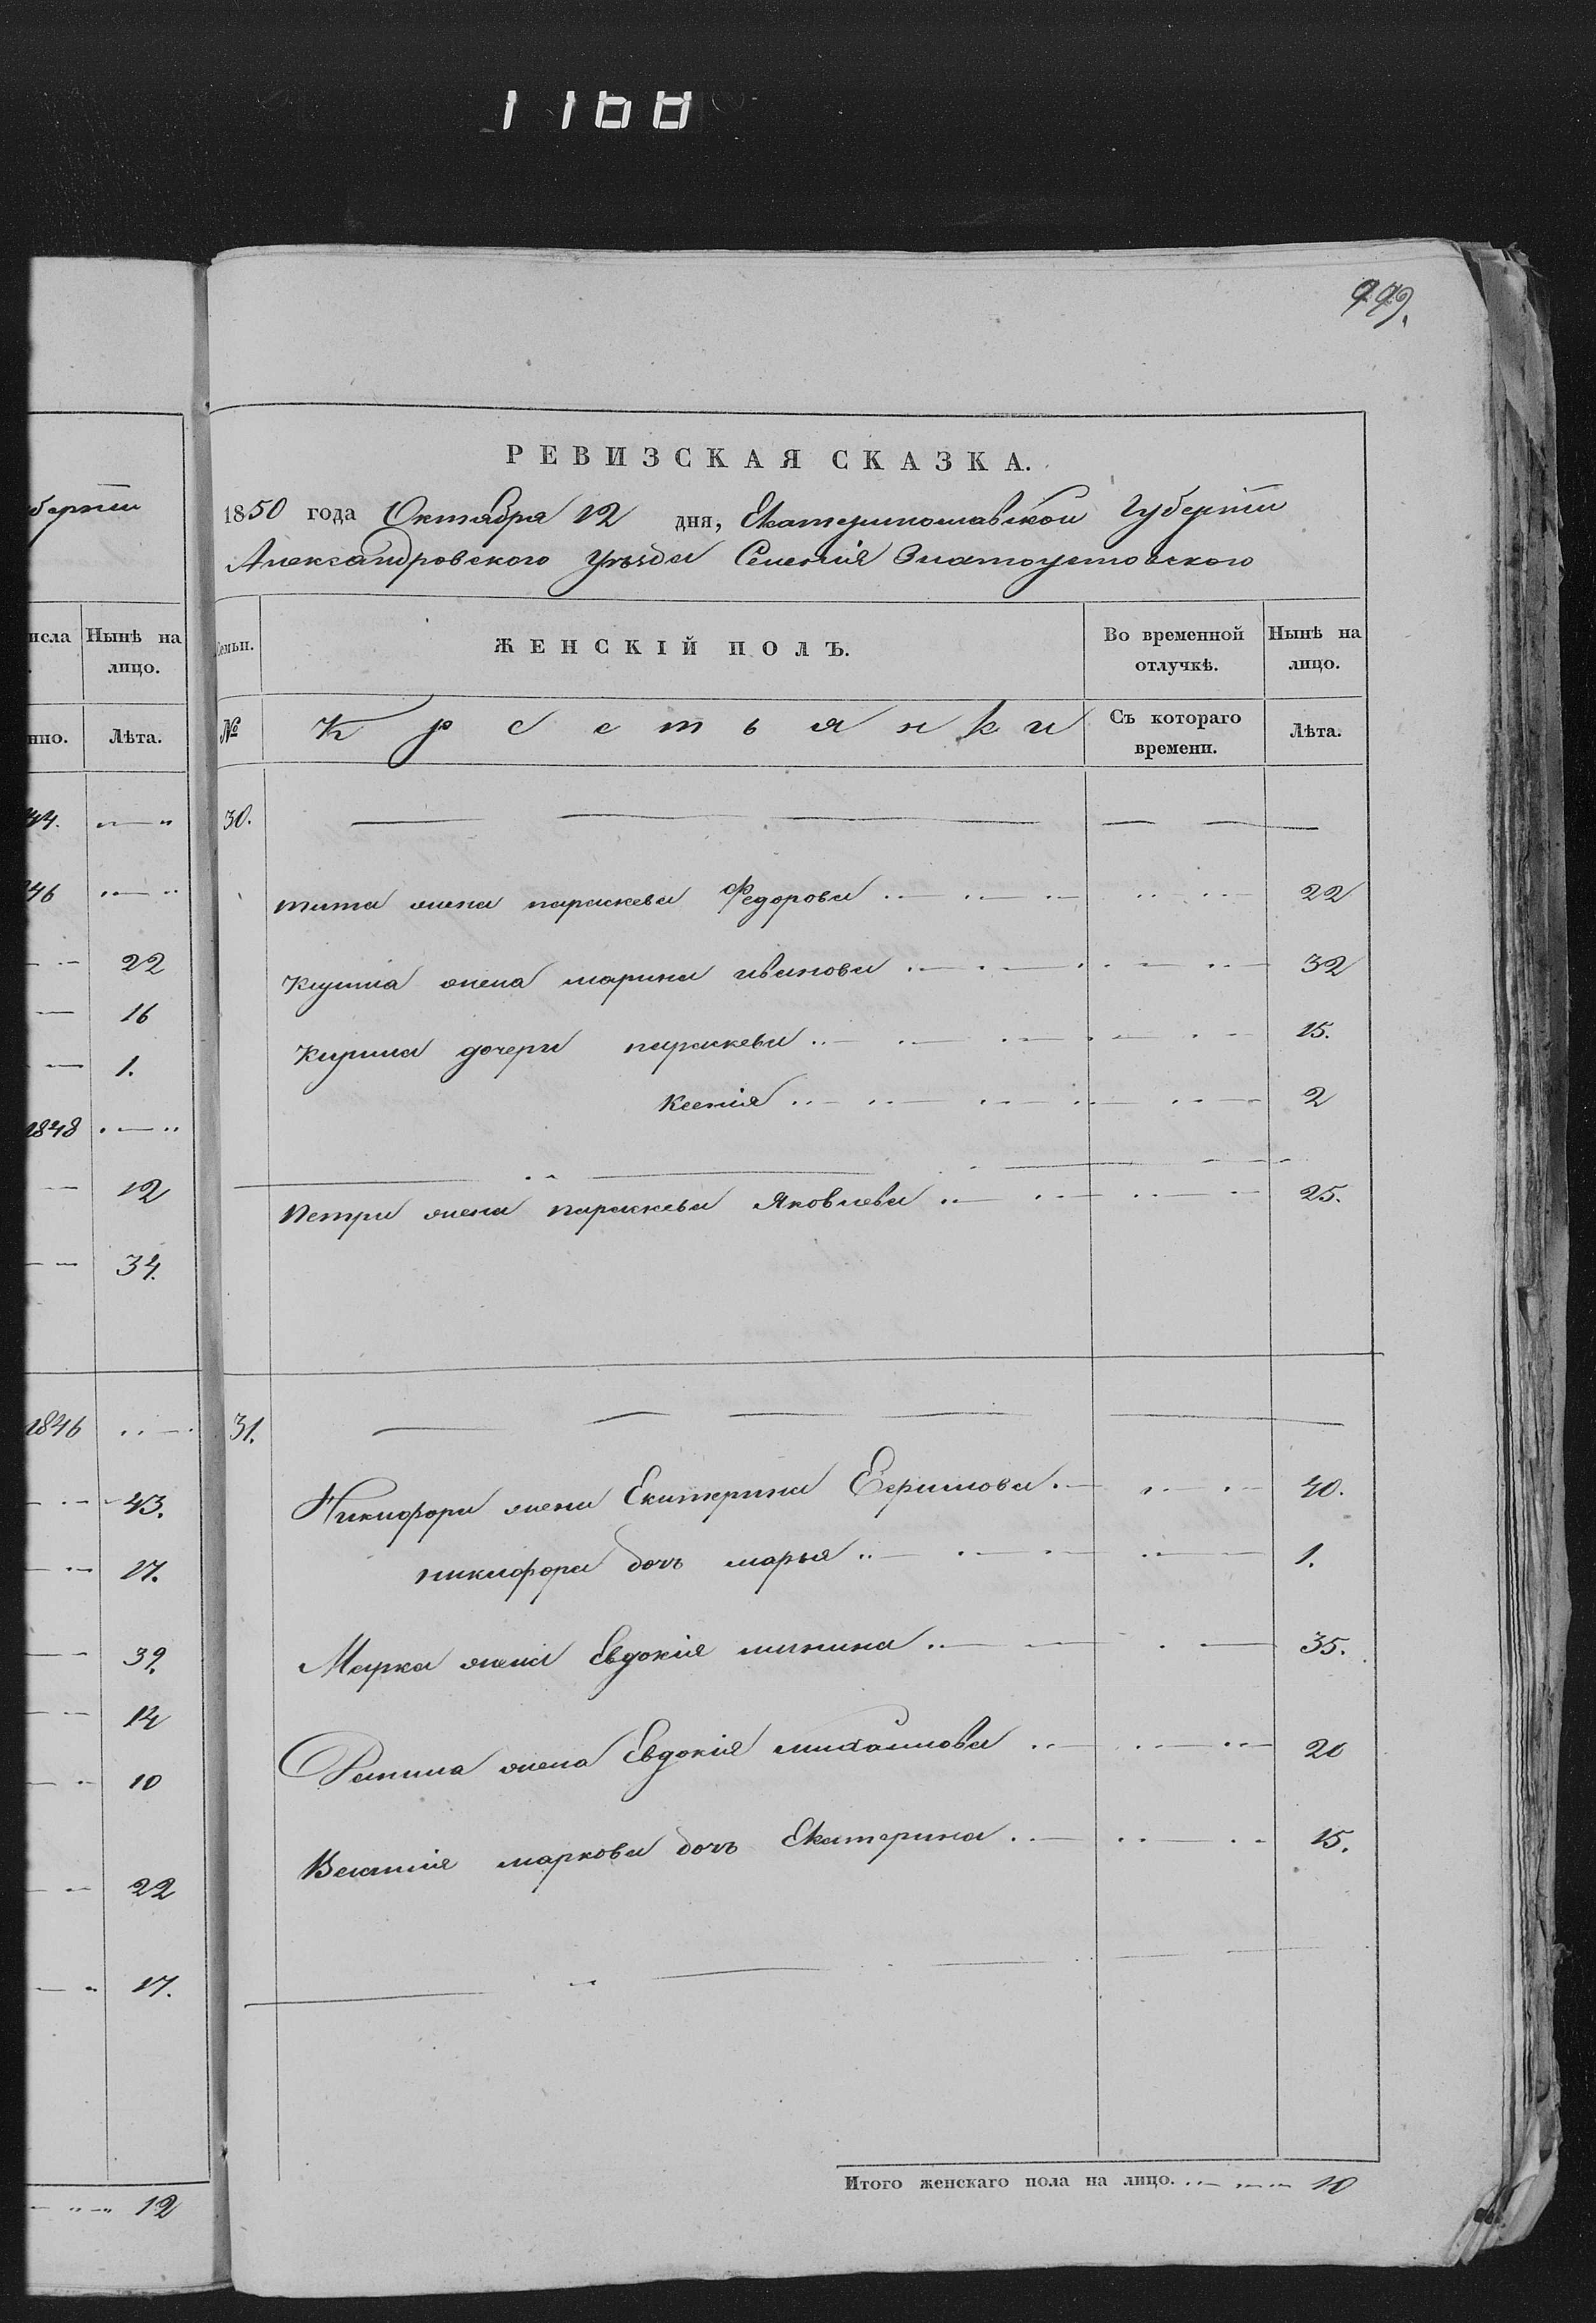 1168
999.
РЕВИЗСКАЯ СКАЗКА.
1850 года Октября 12 дня, Екатеринославской Губерніи
Александровского уѣзда Селенія Златоустовского
Семьи. ЖЕНСКІЙ ПОЛЪ. Во временной отлучкѣ. Нынѣ на лицо.
№ Крестьянки Съ котораго времени. Лѣта.
30.
тита жена параскева Федорова 22
жена марина иванова 32
дочери параскева 15.
Ксенія 2
Петра жена параскева Яковлева 25.
31.
Никифора жена Екатерина Ефимова 40.
никифора дочь марья 1.
Марка жена Евдокія минина 35.
жена Евдокія михаилова 20
маркова дочь Екатерина 15.
Итого женскаго пола на лицо. 10
берніи
исла Нынѣ на лицо.
нно. Лѣта.
44.
46
22
16
1.
1848
12
34.
1846
43.
17.
39.
14
10
22
17.
12